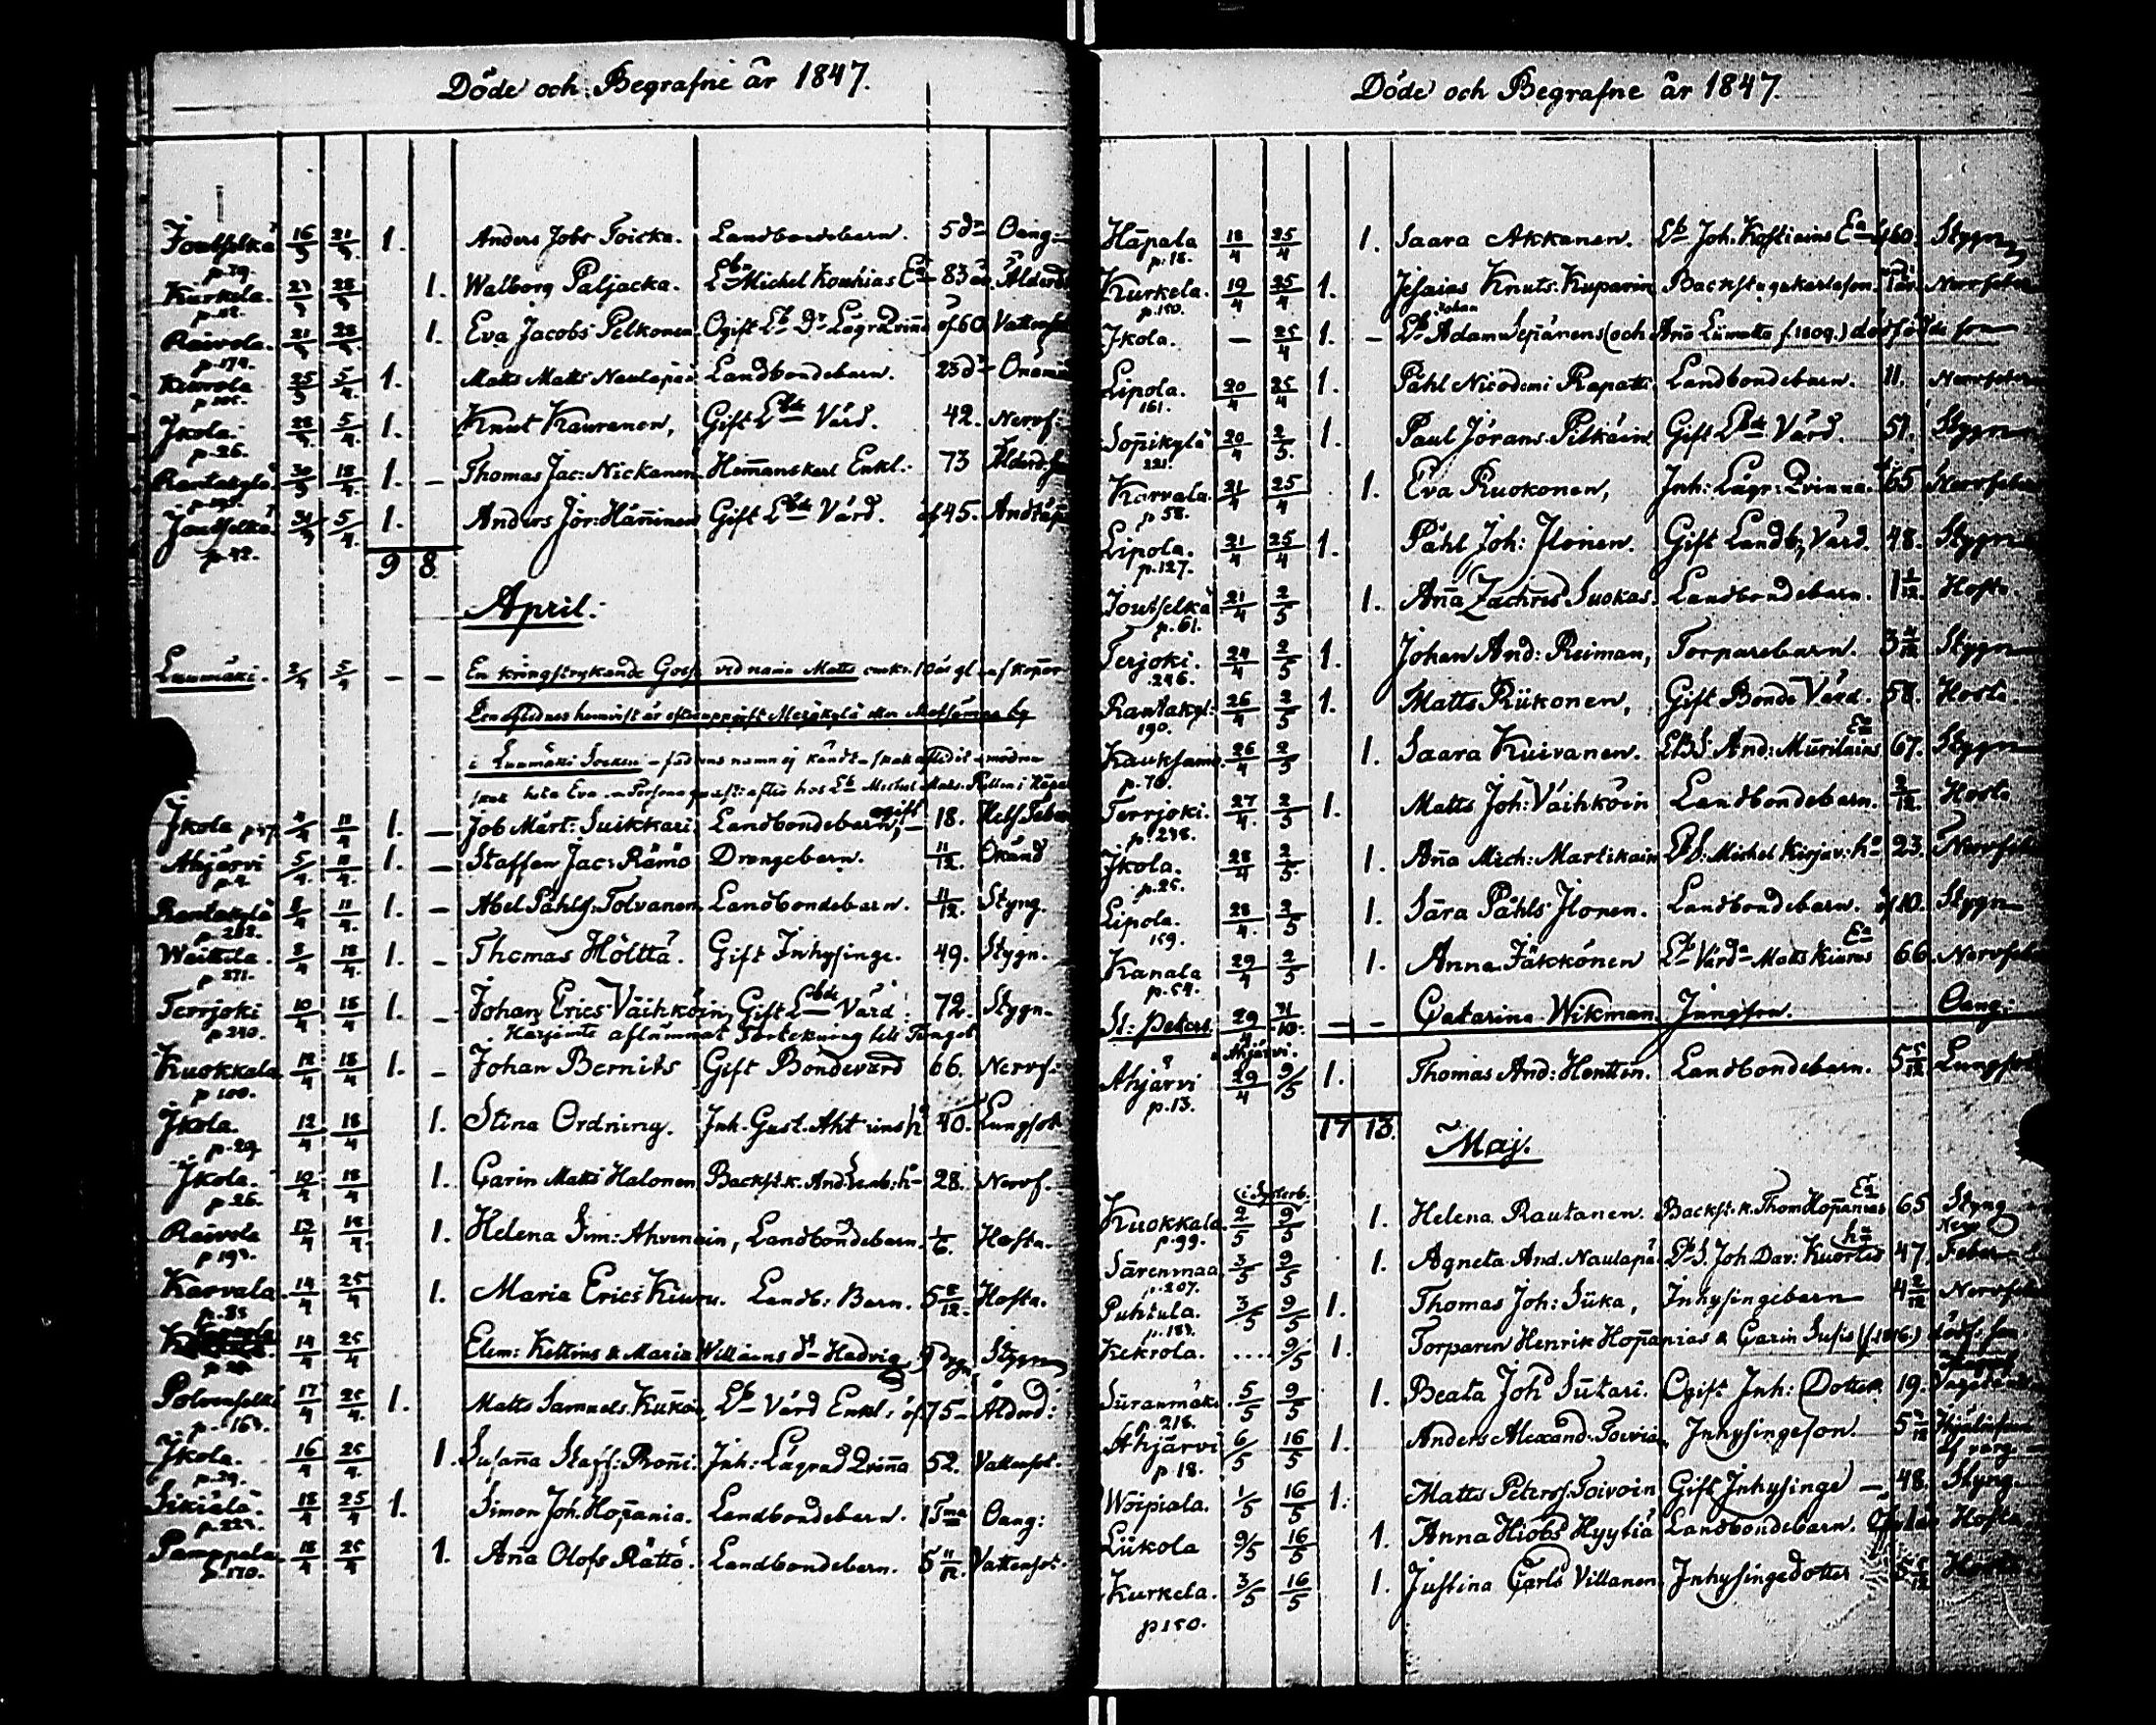 Döde och Begrafne år 1847.
Joutselkä 16/3 21/3 1. Anders Jobs Toicka. Landbondebarn. 5 dr Oang:
p.29.
Kurkela. 23/3 28/3 1. Walborg Paljacka. Lbn Michel Kouhias Ea 83 år Ålderd
Raivola. 21/3 28/3 1. Eva Jacobs Pelkonen Ogift Lb Dr Lägr Qvinna öf 60 Vattensot
p.174.
25/3 5/4. 1. Matts Matts Naulapää Landbondebarn. 23 dr Onämnd
Ikola. 28/3. 5/4. 1. Knut Kauranen, Gift Lbde Värd. 42. Nervf:
p.26.
Rantakylä 30/3 18/4. 1. – Thomas Jac: Nickanen Hemmanskarl Enkl. 73 Ålderd.
Joutselkä. 31/3 5/4. 1. Anders Jör: Hänninen Gift Lbde Värd. öf 45. Andtäppa
p.42.
9 8.
April.
Luumäki. 2/4 5/4 – – En kringstrykande Gosse vid namn Matts omkr. 10 år gl. af koppor
Den aflednes hemvist är efter uppgift Meräkylä eller Motsämä by
i Luumäki Socken – fadrens namn ej kändt – skall aflidit – modren
skall heta Eva – Lb Michel Matts. Pullin i Häpä
Ikola p.47. 4/4 11/4 1. – Job Mårt: Suikkari Landbondebarn, ogift – 18. Hels Feber
Ahjärvi 5/4. 11/4. 1. – Staffan Jac: Rämö Drengebarn. 11/12. Okänd
p.4.
Rantakylä 8/4 11/4. 1. – Abel Påhls: Tolvanen Landbondebarn. 11/12. Styng.
p.202.
Weittila. 8/4 18/4. 1. – Thomas Hölttä. Gift Inhysinge. 49. Stygn.
p.271.
Terrjoki 10/4 18/4 1. – Johan Erics Väihköin, Gift Lbde Värd: 72. Stygn.
p.240. Harjemte aflämnat Förtekning tels Tinget
Kuokkala 12/4 18/4 1. – Johan Bernits Gift Bondevärd 66. Nervf:
p.100.
Ikola. 12/4 18/4 1. Stina Ordning. Inh. Gust. Ahtiains ha 40. Lungsot
p.29
Ikola. 10/4 18/4 1. Carin Matts Halonen Backst. k. And. Lemb: ha 28. Nervf.
p.26.
Raivola 13/4 18/4. 1. Helena Sim: Ahvenain, Landbondebarn. 1/6. Hosta.
p.193.
Karvala. 14/4 25/4 1. Maria Erics Kiuru. Landb: Barn. 5 8/12. Hosta.
p.83
14/4 25/4 Elem: Kettins & Maria Villains dr Hedvig 9 dgr. Stygn
Polvenselkä 17/4 25/4. 1. Matts Samuels. Kukön, Lb Värd Enkl: öf 75 – Ålderd:
p.163.
Ikola. 16/4 25/4. 1. Susanna Staff: Ronni. Inh: Lägrad Qvinna 52. Vattensot.
p.29.
Sikiälä. 18/4 25/4 1. Simon Joh. Hopania. Landbondebarn. 1 Tma Oang:
p.223.
Pamppala. 18/4 25/4 1. Anna Olofs Rättö. Landbondebarn. 5 11/12. Vattensot.
p.170.
Döde och Begrafne år 1847.
Häpala 18/4 25/4 1. Saara Akkanen. Lb Joh. Kostiains Ea öf 60. Stygn
p.18.
Kurkela. 19/4 25/4 1. Jesaias Knuts. Kuparin Backstugukarlsson. 1 år. Nervfeber
p.150.
Ikola. – 25/4 1. – Lb Adam Johan Sepänens (och Anna Liimatta f. 1809.) dödfödde son
Lipola. 20/4 25/4 1. Påhl Nicodemi Rapatti Landbondebarn. 11. Nervfeber
161.
Sopikylä 20/4 2/5. 1. Paul Jörans. Pitkäin Gift Lbde Värd. 51. Stygn
221.
Karvala. 21/4 25/4 1. Eva Ruokonen, Inh: Lägr: Qvinna. 65 Nervfeber
p.58.
Lipola. 21/4 25/4 1. Påhl Joh: Ilonen. Gift Landb: Värd. 48. Stygn
p.127.
Joutselkä. 21/4 2/5 1. Anna Zachris Suokas. Landbondebarn. 1 2/12. Hosta.
p.61.
Terjoki. 24/4 2/5 1. Johan And: Reiman, Torparebarn. 3 4/12 Stygn
246.
Rantakyl: 26/4 2/5 1. Matts Riikonen, Gift Bonde Värd. 58. Hosta.
190.
Kauksamo. 26/4 2/5 1. Saara Kuivanen. LBS: And: Murilains Ea 67. Stygn
p.70.
Terrjoki. 27/4. 2/5 1. Matts Joh: Väihköin Landbondebarn. 3/12. Hosta
p.238.
Ikola. 28/4 2/5. 1. Anna Mich: Martikain LbS: Michel Kirjav: ha 23. Nervfeber
p.25.
Lipola. 28/4. 2/5 1. Sara Påhls Ilonen. Landbondebarn. öf 10. Stygn
159.
Kanala 29/4 2/5 1. Anna Jäkkönen Lb Värda Matts Kiurus Ea 66. Nervfeber
p.54.
St: Peters. 29/4 31/10. – – Catarina Wikman. Jungfru. Oang:
i Ahjärvi.
Ahjärvi 29/4 9/5 1. Thomas And: Hentten. Landbondebarn. 5 5/12 Lungsot
p.13.
17 13.
Maj.
i Systerb.
Kuokkala. 2/5 9/5 1. Helena Rautanen. Backst. k. Thom Hopanias Ea 65 Styng
p.99.
Särenmaa 3/5 9/5 1. Agneta And. Naulapä. LbS. Joh. Dav: Kuortis ha 47. Nerv Feber
p.207.
Puhtula. 3/5 9/5 1. Thomas Joh: Siika, Inhysingebarn 4 2/12 Nervfeber
p.183.
Kekrola. .... 9/5 1. Torparen Henrik Hopanias & Carin Susis (f. 1816.) dödf: son.
Suranmäki. 5/5 9/5 1. Beata Johd Sutari. Ogift Inh: Dotter. 19.
p.218.
Ahjärvi 6/5 16/5 1. Anders Alexand. Toivian, Inhysingeson. 5 2/12
p.18.
Woipiala. 1/5 16/5 1. Matts Peters. Toivoin Gift Inhysinge – 48. Styng
Liikola 9/5 16/5 1. Anna Hiobs Hyytiä Landbondebarn. Hosta
Kurkela. 3/5 16/5 1. Justina Carls Villanen, Inhysingedotter. 5 5/12 Hosta
p.150.